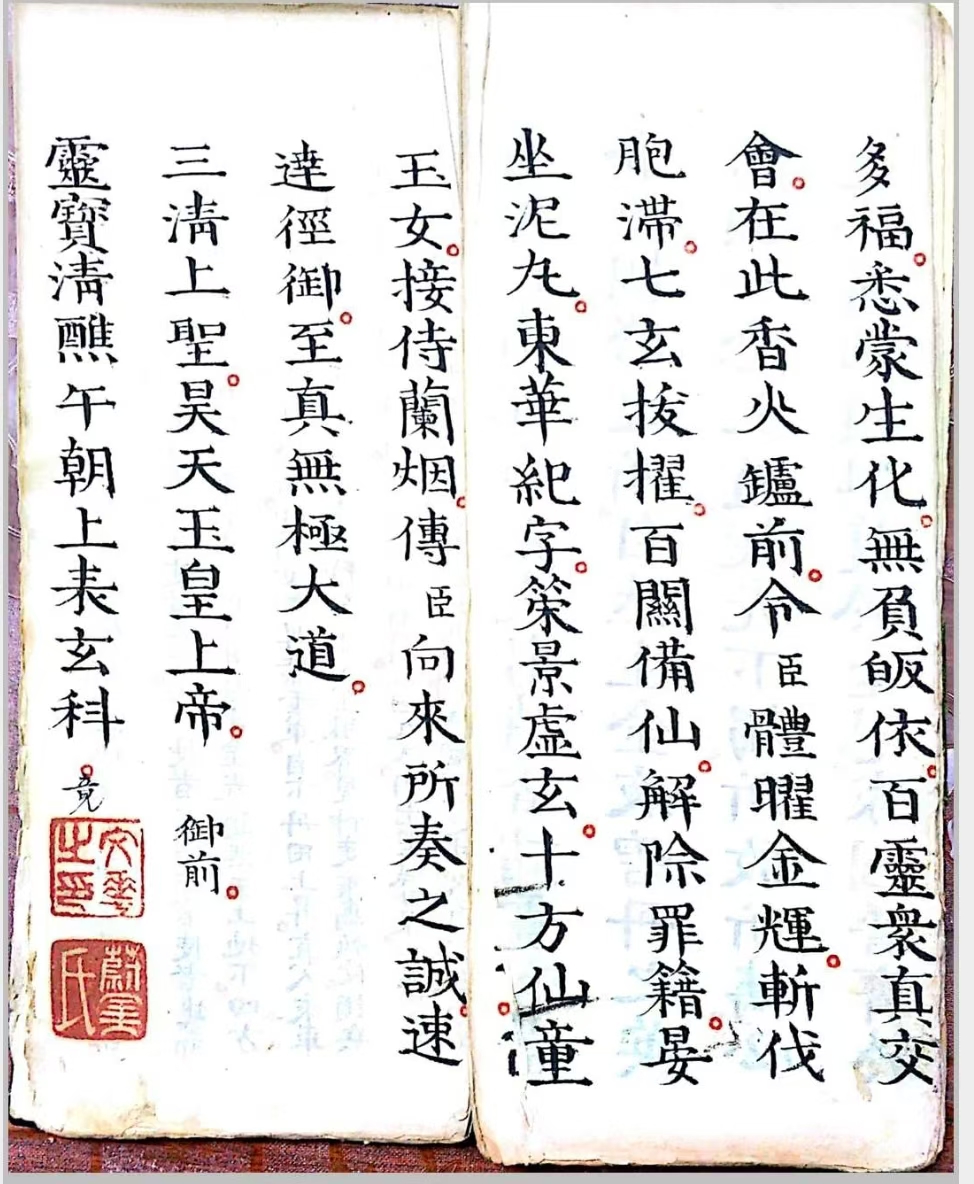 多福。悉蒙生化。無負皈依。百靈衆真交
會。在此香火鑪前。令臣體曜金輝。斬伐
胞滯。七玄拔擢。百關備仙。解除罪籍。晏
坐泥丸。東華紀字。策景虛玄。十方仙童
玉女。接侍蘭烟。傳臣向來所奏之誠。速
達徑御。至真無極大道。
三清上聖。昊天玉皇上帝。御前。
靈寶清醮午朝上表玄科。竟
之印
氏